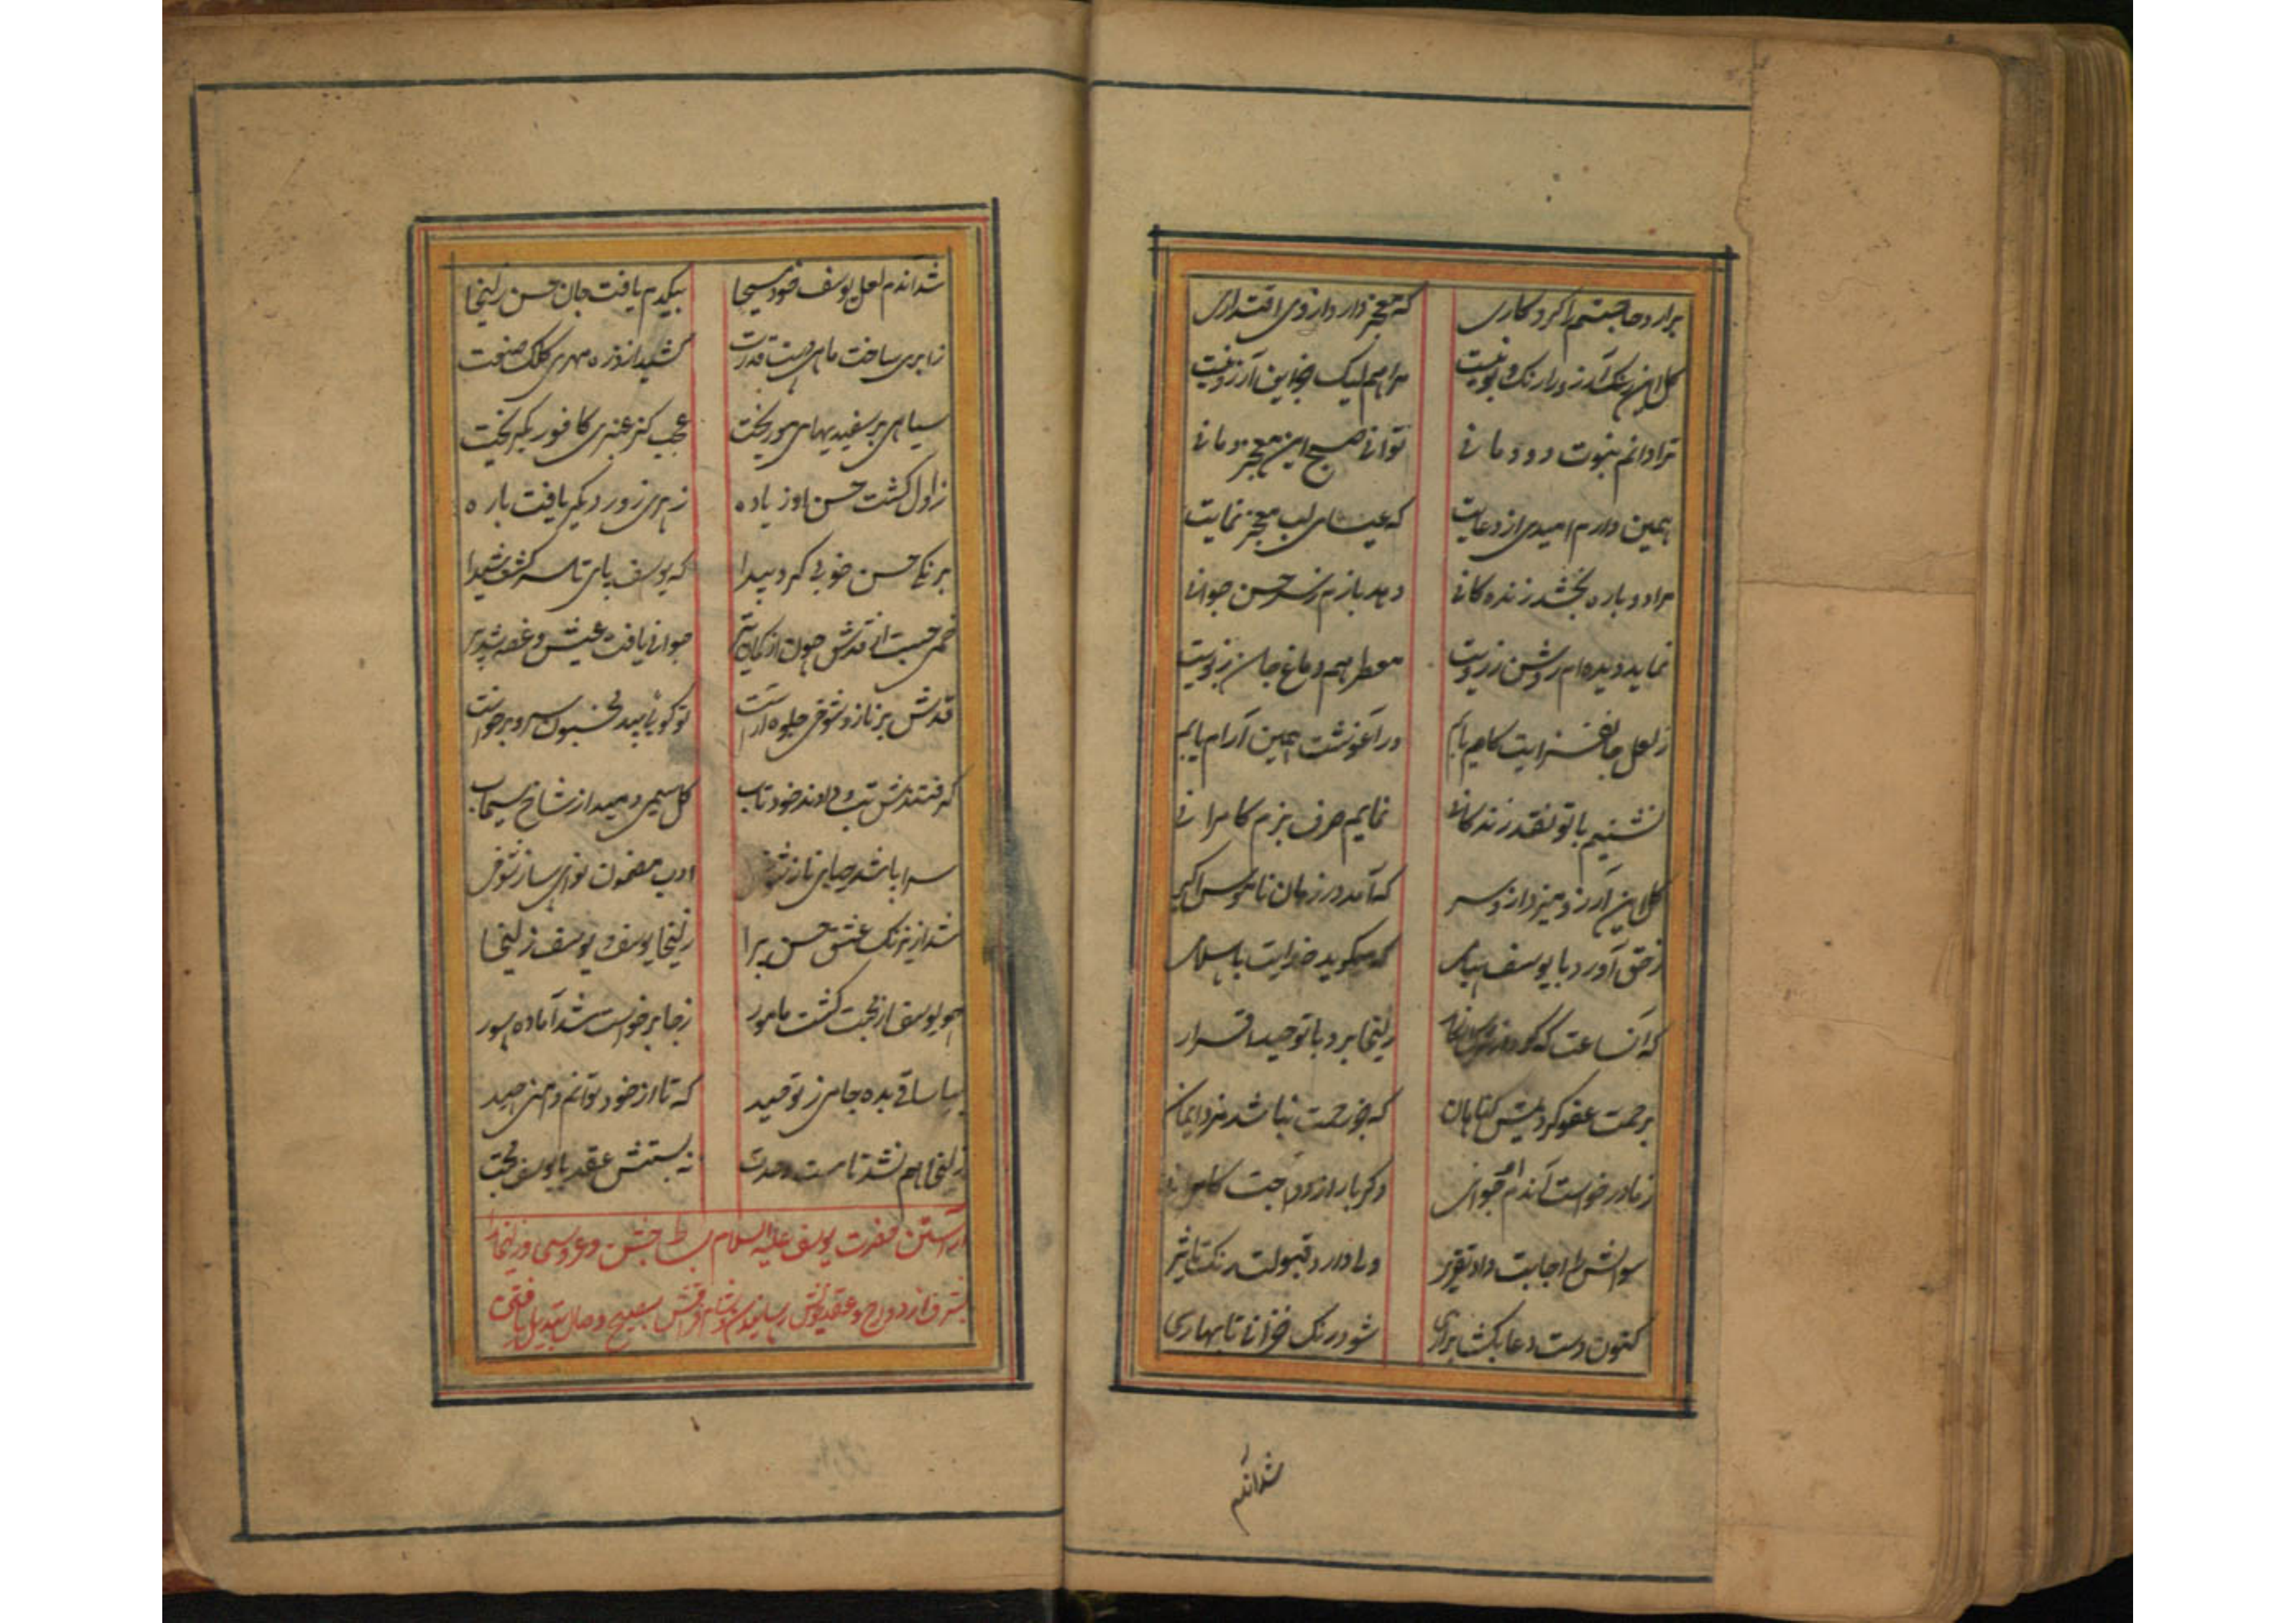 برارد حاجتم را کردکاری که معجز دار داروی اقتداری
کل این آرزو را رنک و بو نیست مرا هم لیک جز این آرزو نیست
ترا دانم نبوت دودمانی توانی صبح این معجز دمانی
همین دارم امیدی از دعایت که عیسای لب معجز نمایت
مرا دوباره بخشد زندکانی دهد بازم ز سر حسن جوانی
نماید دیده ام روشن ز رویت معطر هم دماغ جان ز بویت
ز لعل جانفزایت کام یابم در آغوشت همین آرام یابم
نشینم با تو نقد زندکانی نمایم صرف بزم کامرانی
کل این آرزو میزد ازو سر که آمد در زمان ناموس اکبر
ز حق آورد با یوسف پیامی که میکوید خدایت با سلامی
که آنساعت که کرد زلیخا برد با توحید اقرار
برحمت عفو کردیمش کناهان که جز رحمت نباشد مزد ایمان
ز ما درخواست آندم جوانی دکر بار ازدواجت کامرانی
سوالش را اجابت داد تقریر دعا دارد قبولت رنک تاثیر
کنون دست دعا بکشا بزاری شود رنک خزانی تا بهاری
شداندم
شد اندم لعل یوسف خود مسیحا بیکدم یافت جان حسن زلیخا
ز ابری ساخت ماهی دست قدرت کشید از ذره مهری کلک صنعت
سیاهی بر سفیدیهای مو ریخت عجب کز عنبری کافور بکریخت
ز اول کشت حسن او زیاده ز پیری زور دیکر یافت باره
برنکی حسن خوبی کرد پیدا که یوسف پای تا سر کشت شیدا
خمی جست از قدش چون از کمان تیر جوانی یافت عیش و غصه شد پیر
قدش بر ناز و شوخی جلوه آراست تو کویی بید مجنون سرو برخواست
کرفتندش تب و دادند خود تاب کل سیمی دمید از شاخ سیماب
سراپا شد حیای ناز شوخی ادب مضمون نوای ساز شوخی
شد از نیرنک عشق حسن پیرا زلیخا یوسف و یوسف زلیخا
چو یوسف از محبت کشت مامور ز جا برخواست شد آماده سور
بیا ساقی بده جامی ز توحید که تا از خود توانم دامنی چید
زلیخا هم نشد تا مست وحدت نه بستش عقد با یوسف محبت
آراستن حضرت یوسف علیه السلام بساط جشن و عروسی و زلیخا را
بشرف ازدواج و عقد خویش رسانیدن و شام فراقش بصبح وصال تبدیل یافتن